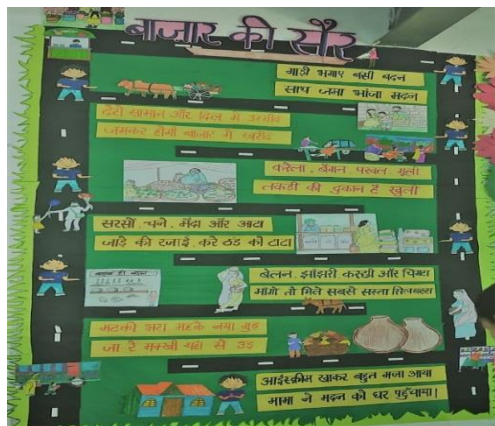 बाजार की सैर
गाड़ी भगाए बंसी बदन
साथ जमा भांजा मदन
ढेरों सामान और दिल में उम्मीद
जमकर होगी बाजार में खरीद
करेला, बैंगन, परवल, मूली
लकड़ी की दुकान है खुली
सरसों, चने, मैदा और आटा
जाड़े की रजाई, करे ठंड को टाटा
बेलन, झांझरी करछी और चिमटा
मांगो तो मिले सबसे सस्ता सिलबट्टा
मटकी भरा महके नया गुड़
जा रे मक्खी यहां से उड़
आईस्क्रीम खाकर बहुत मजा आया
मामा ने मदन को घर पहुँचाया।